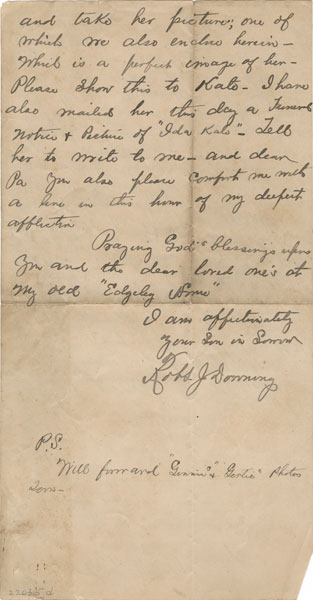 and take her picture; one of
which we also enclose herein -
which is a perfect image of her -
Please show this to Kate - I have
also mailed her this day a Funeral
Notice & Picture of "Ida Kate" - Tell
her to write to me - and dear
Pa you also please comfort me with
a line in this hour of my deepest
affliction
Praying God's blessings upon
you and the dear loved one's at
my old "Edgeley Home"
I am affectionately
your Son in Sorrow
Robb J Downing
P.S.
Will forward "Gennie's" & "Gertie's" Photos
soon -